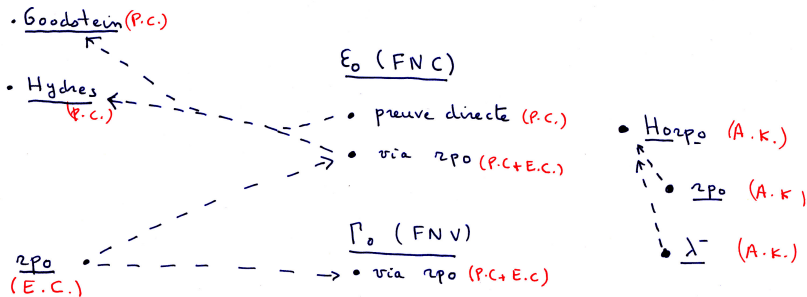 • Goodstein (P.C.)
• Hydres (P.C.)
rpo (E.C.)
ε₀ (FNC)
• preuve directe (P.C.)
• via rpo (P.C+E.C.)
Γ₀ (FNV)
• via rpo (P.C+E.C)
• Horpo (A.K.)
• rpo (A.K)
• λ⁻ (A.K.)